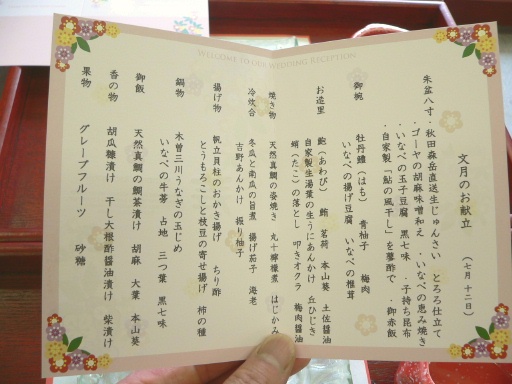 WELCOME TO OUR WEDDING RECEPTION
文月のお献立 (七月十二日)
朱盆八寸・秋田森岳直送生じゅんさい とろろ仕立て
・ゴーヤの胡麻味噌和え ・いなべの恵み焼き
・いなべの玉子豆腐 黒七味 ・子持ち昆布
・自家製「鮎の風干し」を蓼酢で ・御赤飯
御椀 牡丹鱧(はも) 青柚子 梅肉
いなべの揚げ豆腐 いなべの椎茸
お造里 鮑(あわび) 鮪 茗荷 本山葵 土佐醤油
自家製生湯葉の生うにあんかけ 丘ひじき
蛸(たこ)の落とし 叩きオクラ 梅肉醤油
焼き物 天然真鯛の姿焼き 丸十檸檬煮 はじかみ
冷炊合 冬瓜と南瓜の旨煮 揚げ茄子 海老
吉野あんかけ 振り柚子
揚げ物 帆立貝柱のおかき揚げ ちり酢
とうもろこしと枝豆の寄せ揚げ 柿の種
鍋物 木曽三川うなぎの玉じめ
いなべの牛蒡 占地 三つ葉 黒七味
御飯 天然真鯛の鯛茶漬け 胡麻 大葉 本山葵
香の物 胡瓜糠漬け 干し大根酢醤油漬け 柴漬け
果物 グレープフルーツ 砂糖